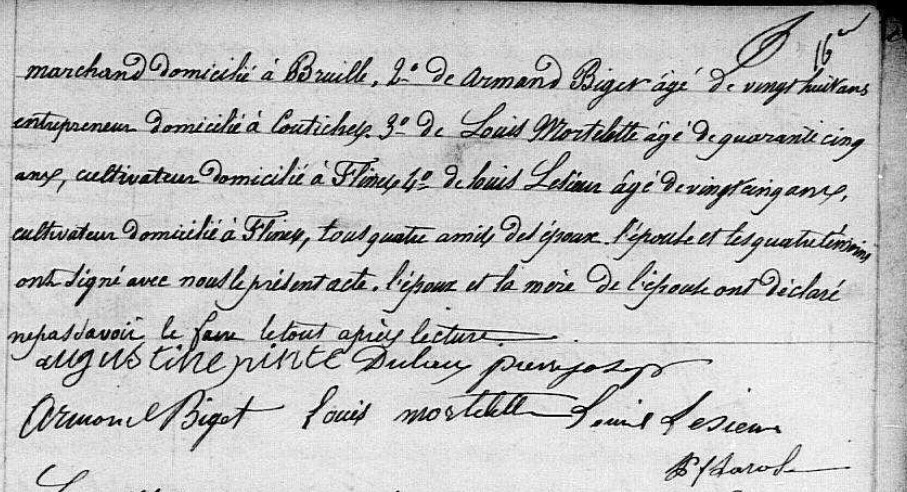 marchand domicilié à Bruille, 2° de Armand Biget âgé de vingt huit ans
entrepreneur domicilié à Coutiches. 3° de Louis Mortelette âgé de quarante cinq
ans, cultivateur domicilié à Flines 4° de louis Lesieur âgé de vingt cinq ans,
cultivateur domicilié à Flines, tous quatre amis des époux. l'épouse et les quatre témoins
ont signé avec nous le présent acte. l'époux et la mère de l'épouse ont déclaré
ne pas savoir le faire le tout après lecture.
augustine pinte Dulieu pierre joseph
Armand Biget Louis mortelette Louis Lesieur